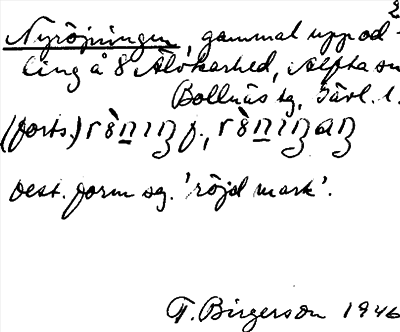 2
Nyröjningen, gammal uppod-
ling å 8 Älvkarhed, Alfta sn
Bollnäs tg, Gävl. l.
(forts.)
best. form sg. 'röjd mark'.
T. Birgerson 1946